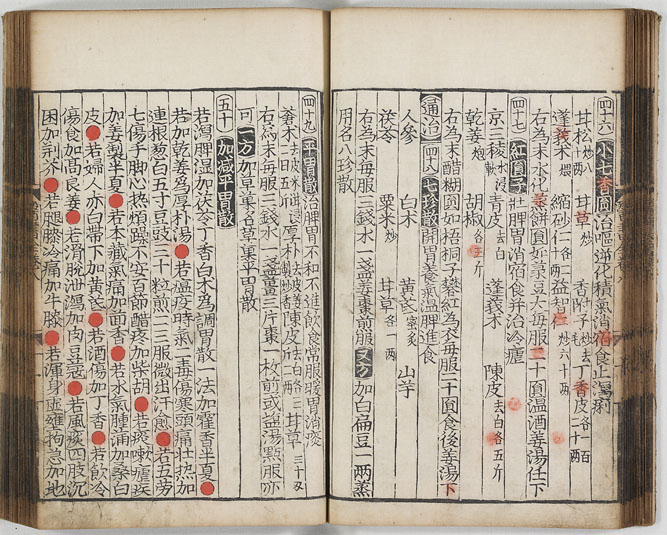 四十六 小七香圓 治嘔逆化積氣消宿食止瀉痢
甘松炒十兩 甘草炒 香附子炒去毛 丁香皮各一百二十兩
蓬莪朮煨 縮砂仁各二十兩 益智仁炒六十兩
右為末水化蒸餅圓如菉豆大每服二十圓溫酒姜湯任下
四十七 紅圓子 壯脾胃消宿食并治冷瘧
京三稜水浸軟 青皮去白 蓬莪木 陳皮去白各五斤
乾姜炮 胡椒各三斤
右為末醋糊圓如梧桐子礬紅為衣每服二十圓食後姜湯下
通治 四十八 七珍散 開胃養氣溫脾進食
人參 白木 黃芪蜜炙 山芋
茯苓 粟米炒 甘草各一兩
右為末每服三錢水一盞姜棗煎服 又方 加白扁豆一兩蒸
用名八珍散
四十九 平胃散 治脾胃不和不進飲食常服暖胃消痰
蒼木去皮米泔浸二日五斤 厚朴去皮姜製炒香 陳皮去白各三斤二兩 甘草三十兩
右為末每服三錢水一盞薑三片棗一枚煎或盐湯點服亦
可 一方 加草菓名草菓平胃散
五十 加減平胃散
若瀉脾濕加茯苓丁香白木為調胃散一法加藿香半夏
若加乾姜為厚朴湯 若瘟疫時氣二毒傷寒頭痛壯熱加
連根葱白五寸豆豉三十粒煎二三服微出汗愈 若五勞
七傷手脚心熱煩躁不安百節酸疼加柴胡 若痰嗽瘧疾
加姜製半夏 若本藏氣痛加茴香 若水氣腫滿加桑白
皮 若婦人赤白帶下加黃芪 若酒傷加丁香 若飲冷
傷食加高良姜 若滑脫泄瀉加肉豆蔻 若風痰四肢沉
困加荊芥 若腿膝冷痛加牛膝 若渾身虛壅拘急加地